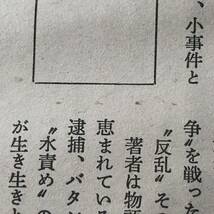 、小事件と
争〟を戦った
〝反乱〟その
著者は物
恵まれている
逮捕、バタ
〝水責め〟の
が生き生き